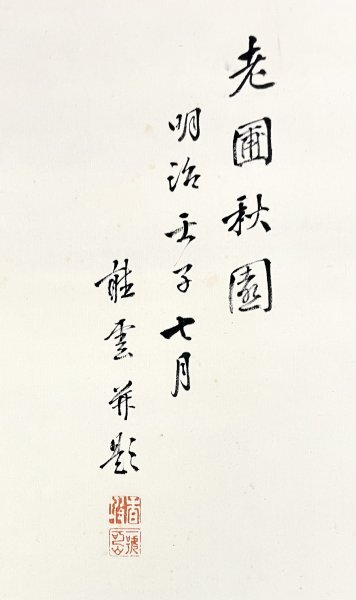 老圃秋園
明治壬子七月
雲并題